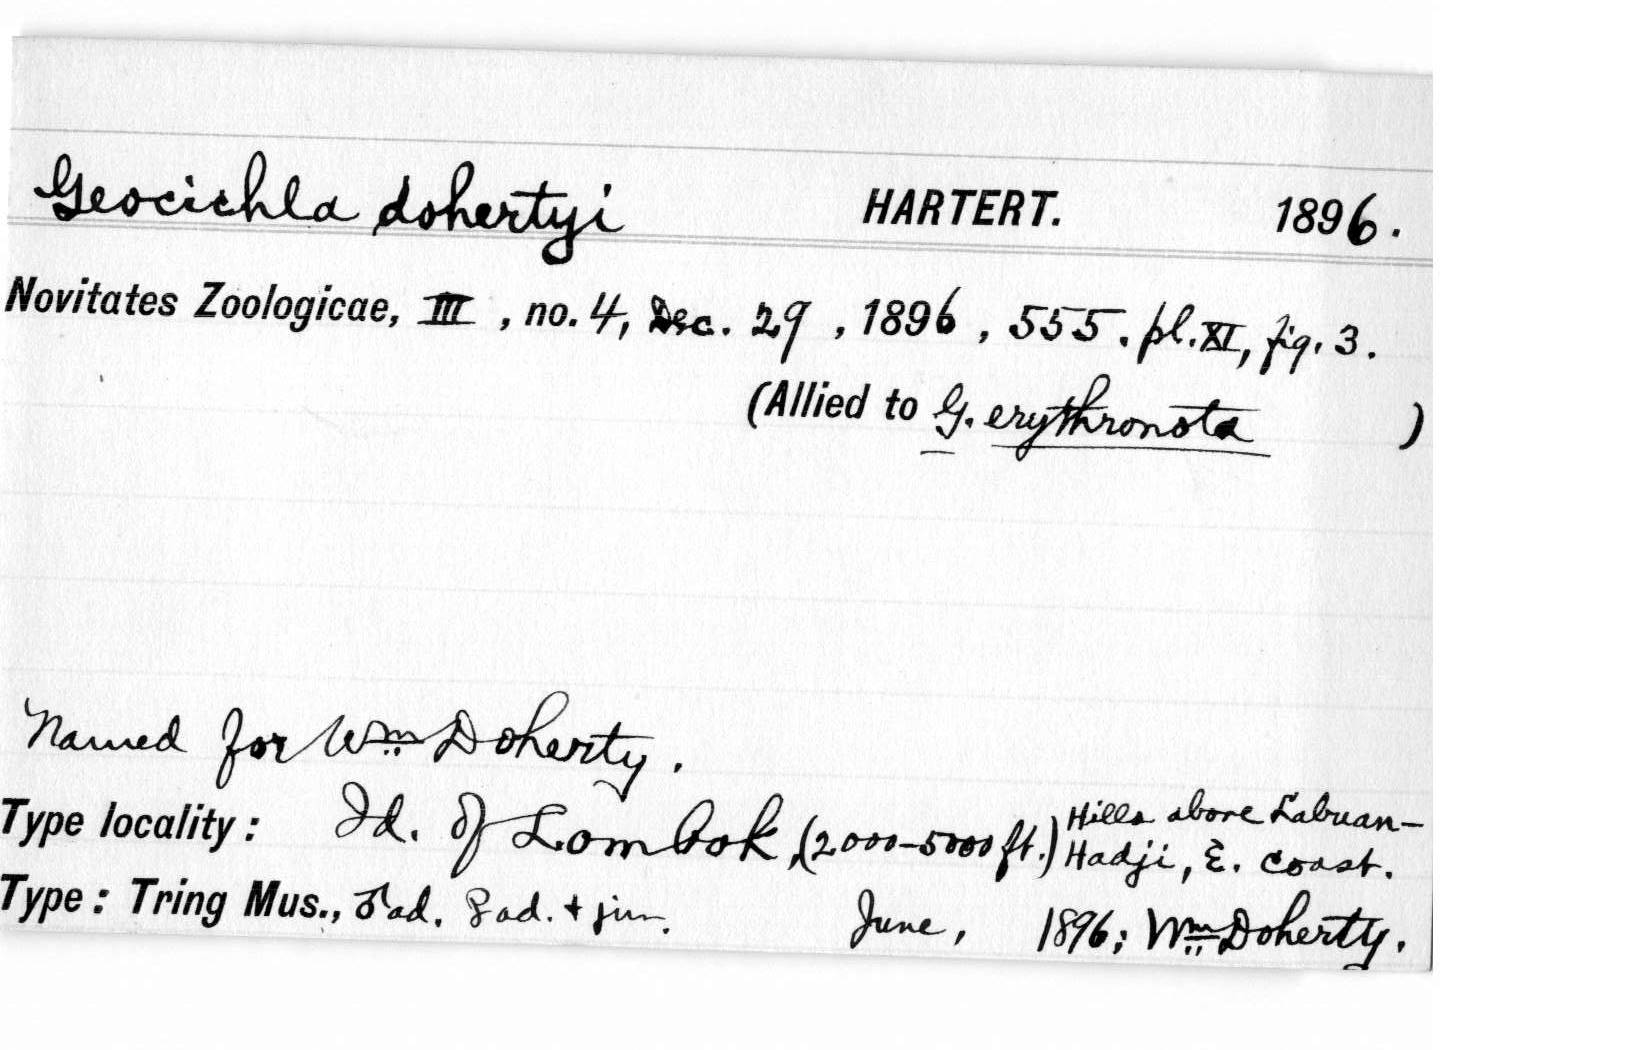 Geocichla dohertyi HARTERT. 1896.
Novitates Zoologicae, III, no. 4, Dec. 29, 1896, 555. pl. XI, fig. 3.
(Allied to G. erythronota )
Named for Wm Doherty.
Type locality: Id. of Lombok, (2000-5000 ft.) Hills above Labuan-
Hadji, E. coast.
Type: Tring Mus., ♂ ad. ♀ ad. + juv. June, 1896; Wm Doherty.